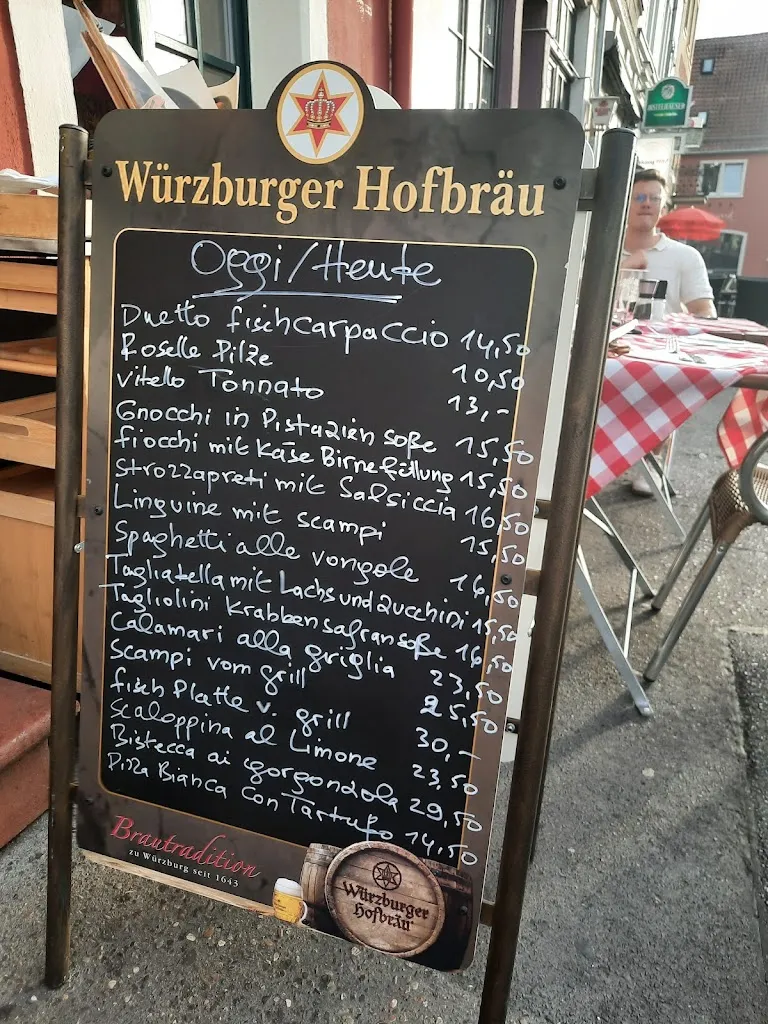 Würzburger Hofbräu
Oggi/Heute
Duetto fischcarpaccio 14,50
Roselle Pilze 10,50
vitello Tonnato 13,-
Gnocchi in Pistazien soße 15,50
fiocchi mit Käse Birnefüllung 15,50
Strozzapreti mit Salsiccia 16,50
Linguine mit scampi 15,50
Spaghetti alle vongole 16,50
Tagliatella mit Lachs und zucchini 15,50
Tagliolini Krabben safran soße 16,50
Calamari alla griglia 23,50
Scampi vom grill 25,50
fisch Platte v. grill 30,-
Scaloppina al Limone 23,50
Bistecca ai gorgonzola 29,50
Pizza Bianca Con Tartufo 14,50
Brautradition
zu Würzburg seit 1643
Würzburger
Hofbräu